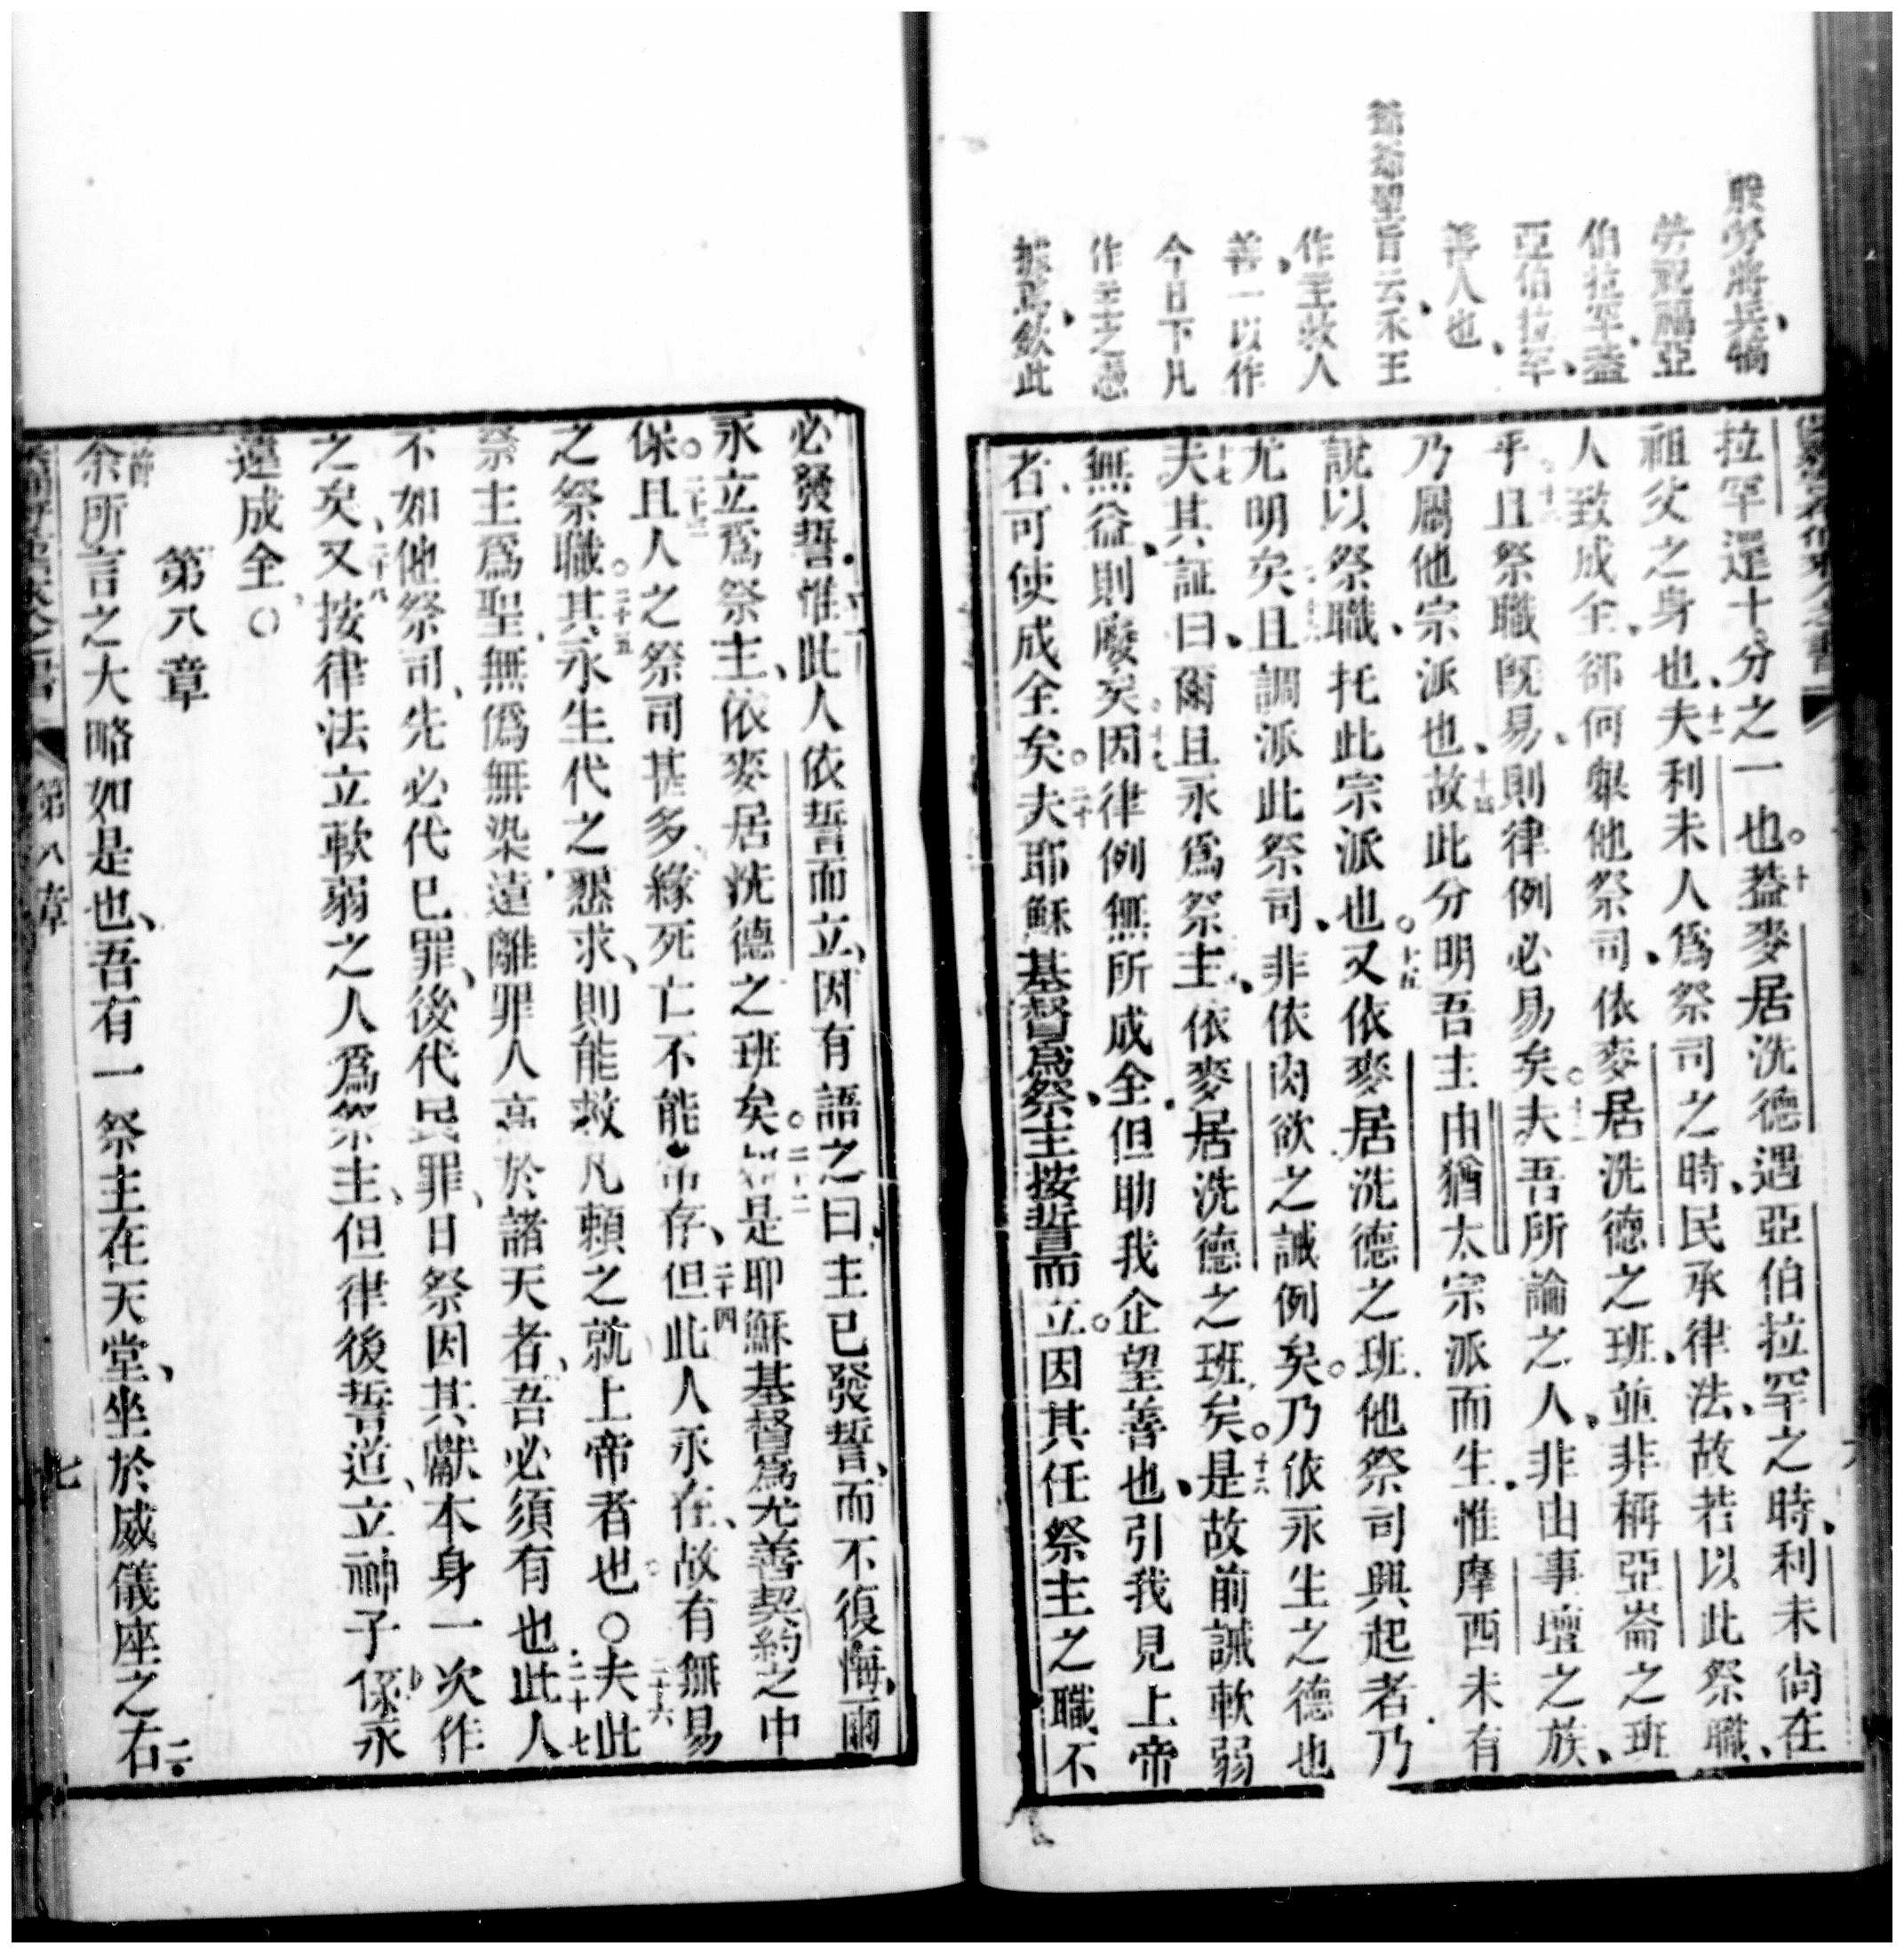 朕勞將兵犒
勞祝福亞
伯拉罕蓋
亞伯拉罕
善人也
爺爺聖旨云禾王
作主救人
善一以作
今日下凡
作主之憑
據焉欽此
拉罕還十分之一也。十葢麥居洗德遇亞伯拉罕之時、利未尙在
祖父之身也、十一夫利未人爲祭司之時、民承律法、故若以此祭職、
人致成全、卻何擧他祭司、依麥居洗德之班、並非稱亞崙之班
乎、十二且祭職旣易、則律例必易矣。十三夫吾所論之人、非由事壇之族、
乃屬他宗派也、十四故此分明吾主由猶太宗派而生、惟摩西未有
說以祭職、托此宗派也。十五又依麥居洗德之班、他祭司興起者、乃
尤明矣、且調派此祭司、非依肉欲之誡例矣。乃依永生之德也
十七夫其証曰、爾且永爲祭主、依麥居洗德之班矣。十六是故前誡軟弱
無益、則廢矣、十九因律例無所成全、但助我企望善也、引我見上帝
者、可使成全矣。二十夫耶穌基督爲祭主按誓而立。因其任祭主之職、不
必發誓、惟此人依誓而立、因有語之曰、主已發誓、而不復悔、爾
永立爲祭主、依麥居洗德之班矣。二十二如是耶穌基督爲尤善契約之中
保。二十三且人之祭司甚多、緣死亡不能常存、二十四但此人永在、故有無易
之祭職。二十五其永生代之懇求、則能救凡賴之就上帝者也。〇二十六夫此
祭主爲聖、無僞無染、遠離罪人、高於諸天者、吾必須有也、二十七此人
不如他祭司、先必代已罪、後代民罪、日祭因其獻本身一次作
之矣、二十八又按律法立軟弱之人爲祭主、但律後誓道、立神子係永
遠成全、〇
第八章
余所言之大略如是也、吾有一祭主在天堂、坐於威儀座之右、二
第八章
七